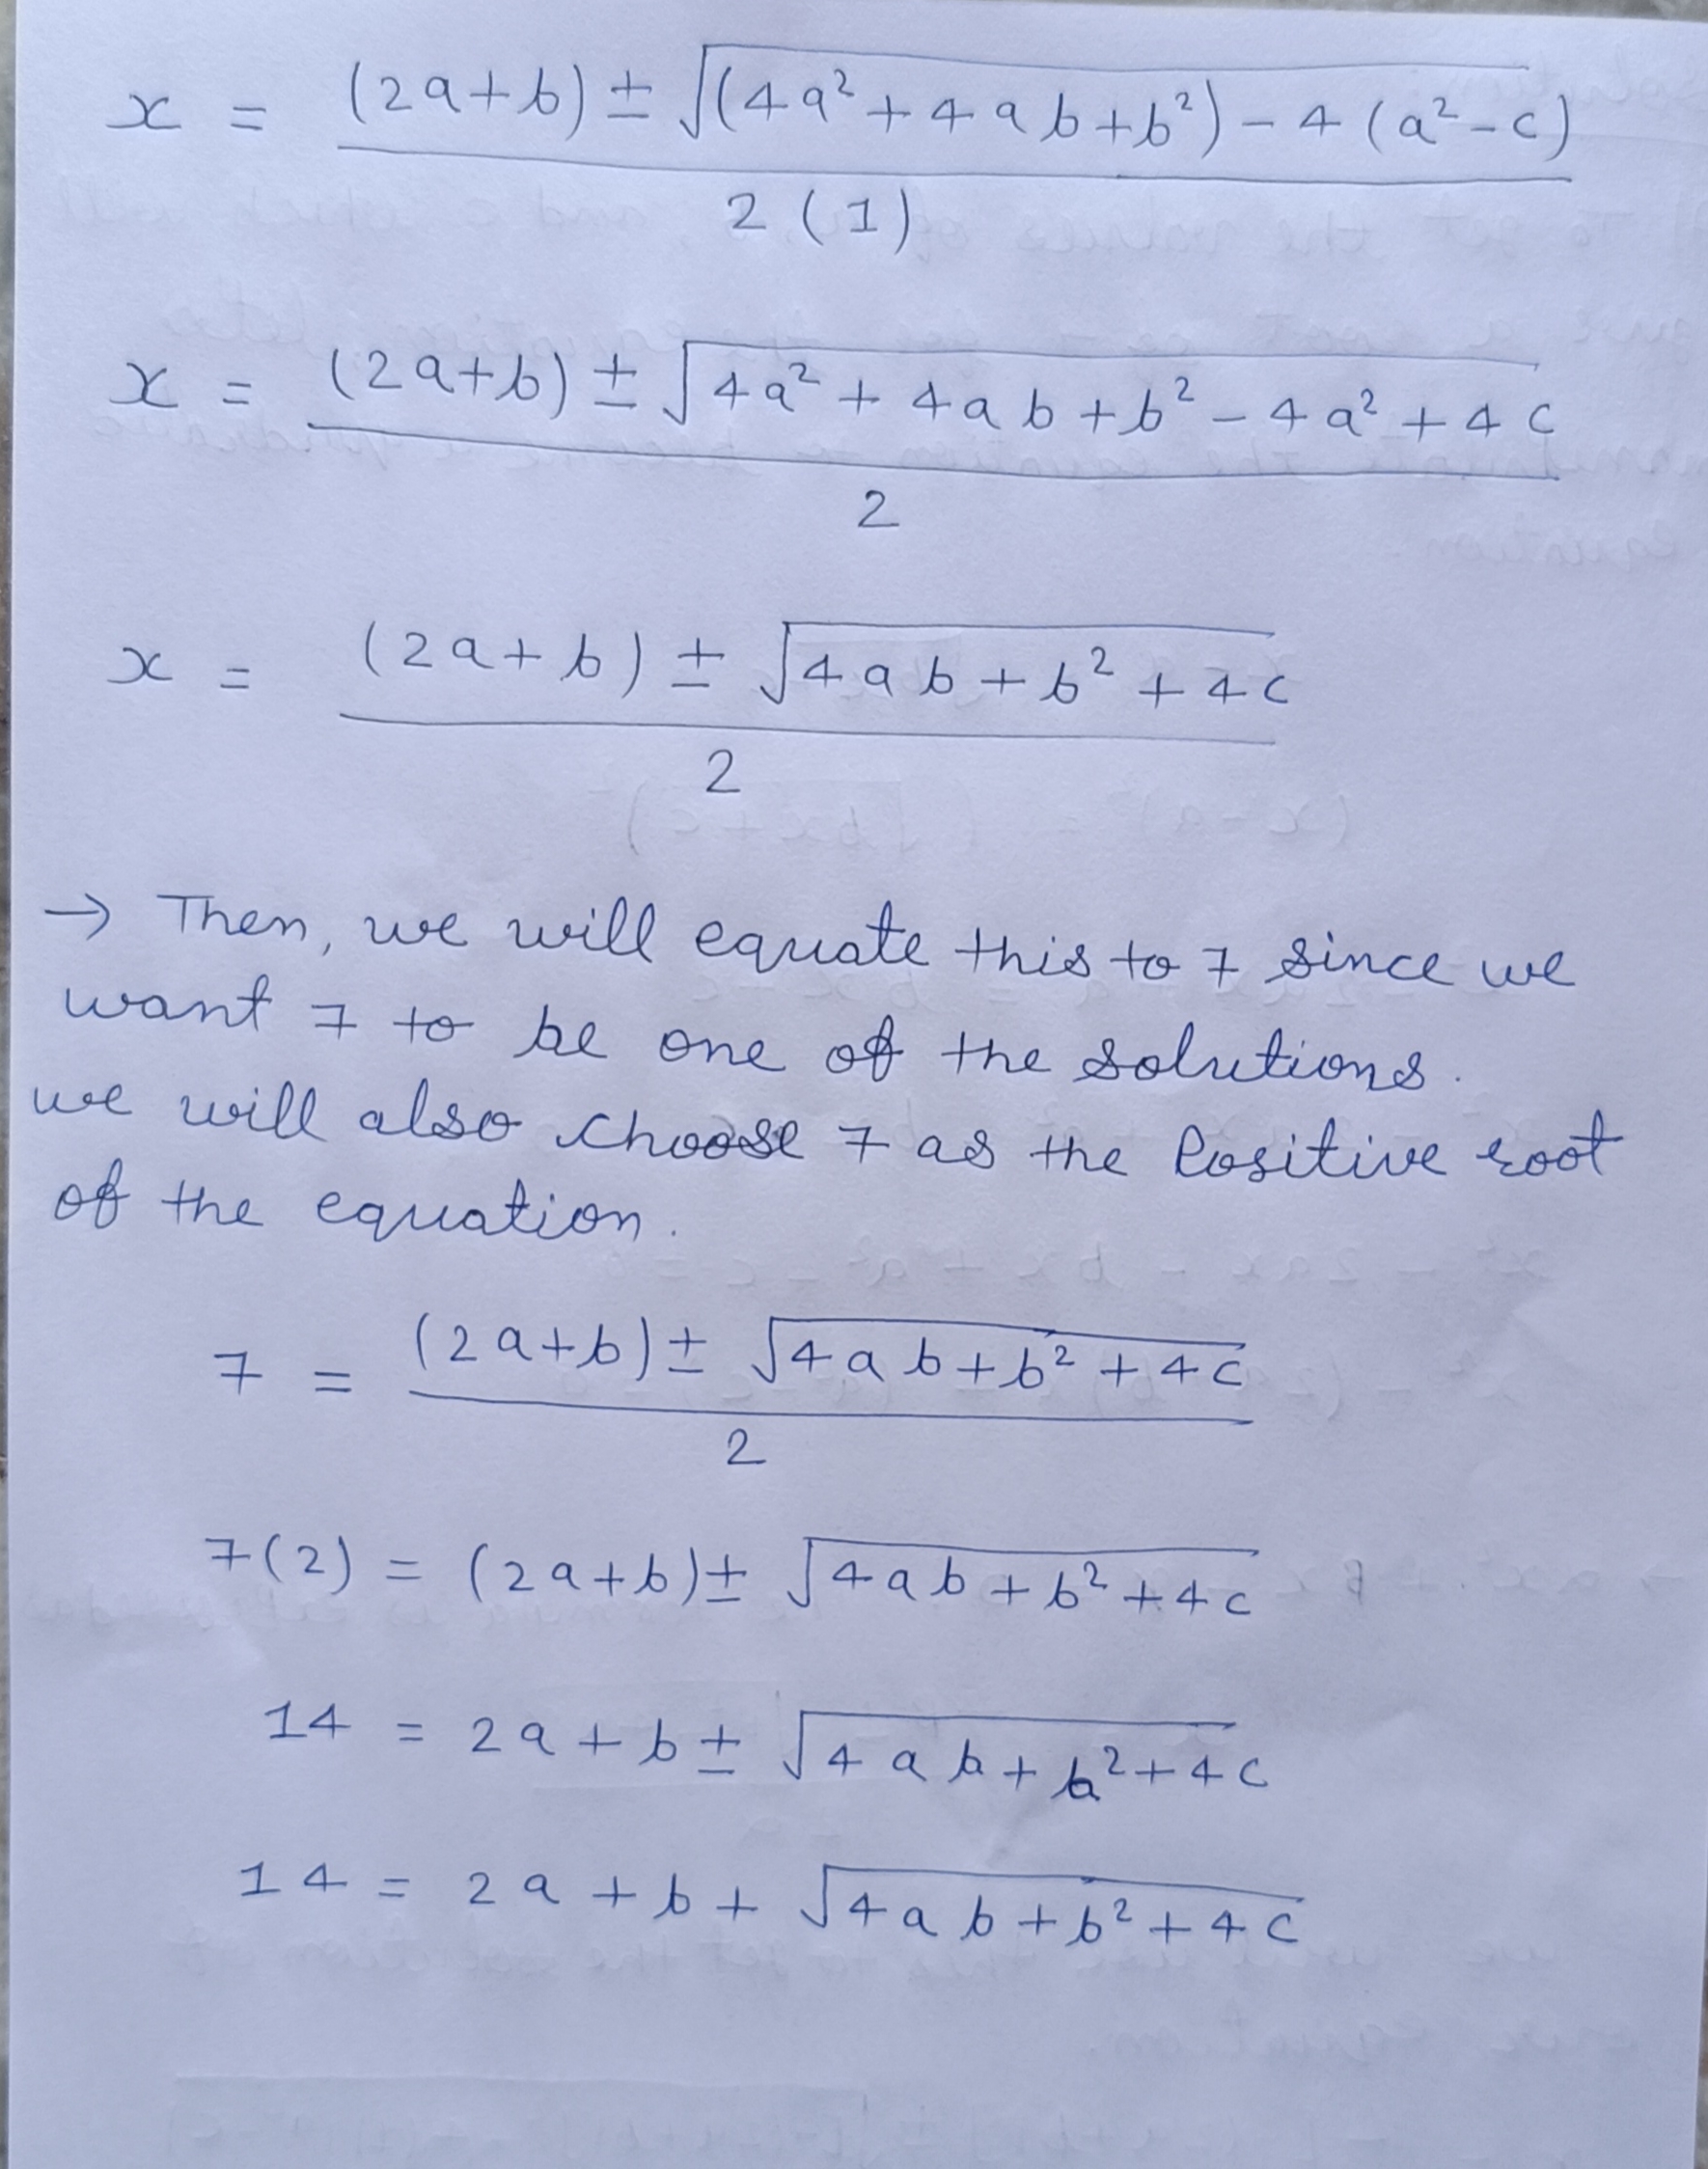 x = (2a+b) ± √(4a²+4ab+b²) - 4(a²-c) / 2(1)
x = (2a+b) ± √4a² + 4ab + b² - 4a² + 4c / 2
x = (2a+b) ± √4ab + b² + 4c / 2
→ Then, we will equate this to 7 since we
want 7 to be one of the solutions.
we will also choose 7 as the Positive root
of the equation.
7 = (2a+b) ± √4ab + b² + 4c / 2
7(2) = (2a+b) ± √4ab + b² + 4c
14 = 2a + b ± √4ab + b² + 4c
14 = 2a + b + √4ab + b² + 4c